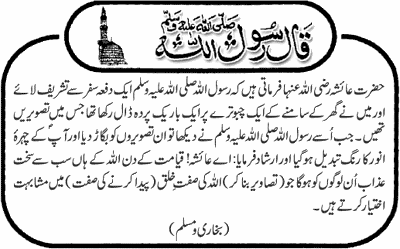 قَالَ رَسُولُ اللّٰہِ صَلَّی اللّٰہُ عَلَیْہِ وَسَلَّم
حضرت عائشہ رضی اللہ عنہا فرماتی ہیں کہ رسول اللہ صلی اللہ علیہ وسلم ایک دفعہ سفر سے تشریف لائے
اور میں نے گھر کے سامنے کے ایک چبوترے پر ایک باریک پردہ ڈال رکھا تھا جس میں تصویریں
تھیں۔ جب اُسے رسول اللہ صلی اللہ علیہ وسلم نے دیکھا تو ان تصویروں کو بگاڑ دیا اور آپؐ کے چہرۂ
انور کا رنگ تبدیل ہوگیا اور ارشاد فرمایا: اے عائشہ! قیامت کے دن اللہ کے ہاں سب سے سخت
عذاب اُن لوگوں کو ہوگا جو (تصاویر بنا کر) اللہ کی صفتِ خلق (پیدا کرنے کی صفت) میں مشابہت
اختیار کرتے ہیں۔
(بخاری و مسلم)